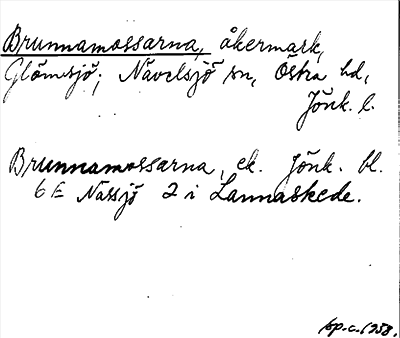 Brunnamossarna, åkermark,
Glömsjö; Nävelsjö sn, Östra hd,
Jönk. l.
Brunnamossarna, ek. Jönk. bl.
6 E Nässjö 2 i Lannaskede.
sp.c. 1958.